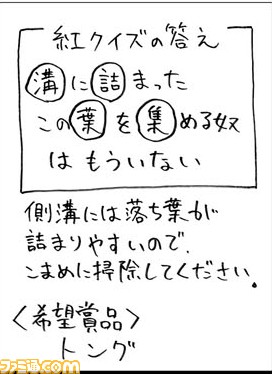 紅クイズの答え
溝に詰まった
この葉を集める奴
はもういない
側溝には落ち葉が
詰まりやすいので、
こまめに掃除してください。
〈希望賞品〉
トング
ファミ通.com